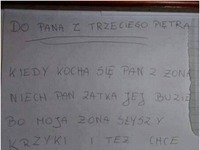 DO PANA Z TRZECIEGO PIĘTRA
KIEDY KOCHA SIĘ PAN Z ŻONĄ
NIECH PAN ZATKA JEJ BUZIE
BO MOJA ŻONA SŁYSZY
KRZYKI I TEŻ CHCE